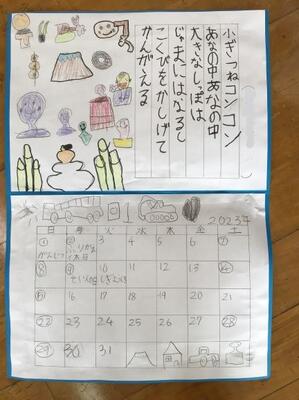 小ぎつねコンコン
あなの中あなの中
大きなしっぽは
じゃまにはなるし
こくびをかしげて
かんがえる
1 2023年
日 月 火 水 木 金 土
1 2 3 4 5 6 7
がんじつ ふりかえ
休日
8 9 10 11 12 13 14
せい人の日 しぎょうしき
15 16 17 18 19 20 21
22 23 24 25 26 27 28
29 30 31